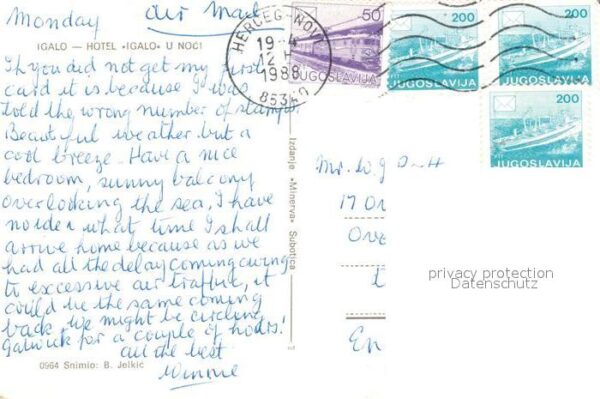 Monday air Mail
IGALO — HOTEL »IGALO« U NOĆI
If you did not get my first
card it is because I was
told the wrong number of stamps.
Beautiful weather but a
cool breeze. Have a nice
bedroom, sunny balcony
overlooking the sea, I have
no idea what time I shall
arrive home because as we
had all the delay coming owing
to excessive air traffic, it
could be the same coming
back we might be circling
Gatwick for a couple of hours!
all the best
Winnie
0964 Snimio: B. Jelkić
Izdanje »Minerva« Subotica
HERCEG-NOVI
19-4
12-
1988
85340
50
JUGOSLAVIJA
200
JUGOSLAVIJA
200
JUGOSLAVIJA
200
JUGOSLAVIJA
Mr. W G
17
privacy protection
Datenschutz
En